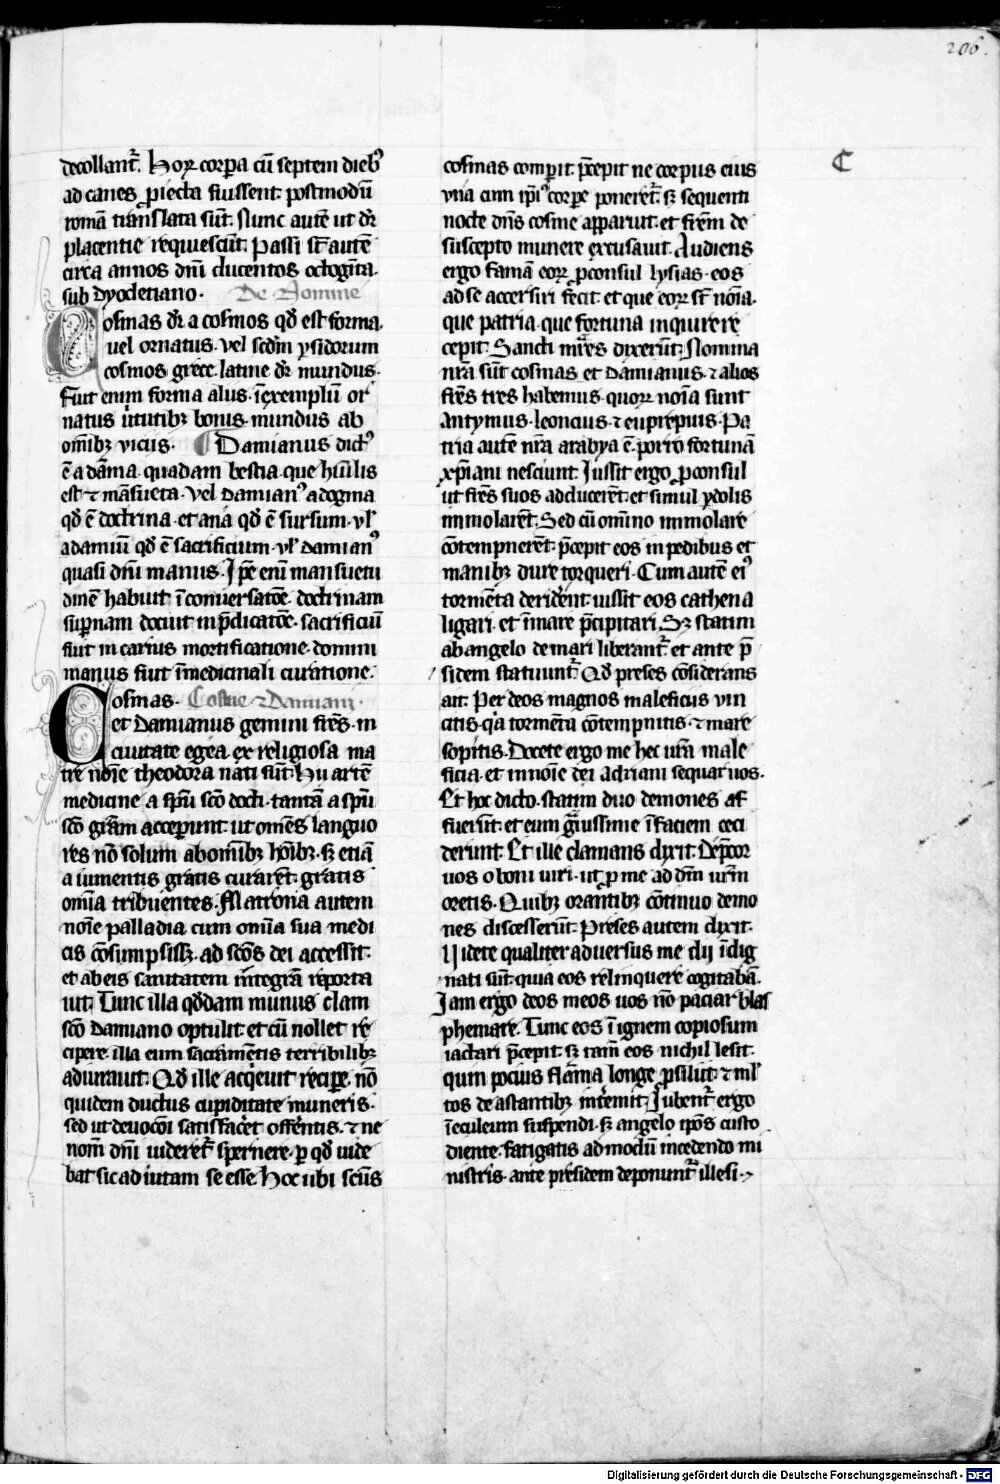 206.
C
decollant᷑. Hoꝝ corꝑa cū septem dieb᷒
ad canes ꝓiecta fuissent. postmodū
romā translata sūt. Nunc autē ut dr̄
placentie requiescūt. Passi sūt autē
circa annos dn̄i ducentos octogīta.
sub dyocletiano. De Nomine
Cosmas dr̄ a cosmos qd̄ est forma.
uel ornatus. vel scd̄m ysidorum
cosmos grece. latine dr̄ mundus.
fuit enim forma aliis. ī exemplū or
natus ꝟtutibꝫ bonis. mundus ab
om̄ibꝫ vicijs. Damianus dict᷒
ē a dāma. quadam bestia. que hūilis
est ⁊ māsueta. vel damian᷒ a dogma
qd̄ ē doctrina. et ana qd̄ ē sursum. vl̄
a damum qd̄ ē sacrificium. vl̄ damian᷒
quasi dn̄i manus. Ip̄e enī mansuetu
dinē habuit ī conuersatōe. doctrinam
suꝑnam docuit in p̄dicatōe. sacrificiū
fuit in carnis mortificatione. domini
manus fuit ī medicinali curatione.
Cosmas. Cosme ⁊ Damiani.
et Damianus gemini fr̄es. in
ciuitate egea. ex religiosa ma
tre noīe theodora nati sūt. Hii artē
medicine a spū scō docti. tantā a spū
scō grām acceperunt. ut omēs languo
res nō solum ab om̄ibꝫ hoībꝫ. sꝫ etiā
a iumentis gratis curarēt. gratis
om̄ia tribuentes. Matrona autem
noīe palladia cum om̄ia sua medi
cis cōsumpsissꝫ. ad scōs dei accessit.
et ab eis sanitatem integrā reporta
uit. Tunc illa qd̄dam munus clam
scō damiano optulit. et cū nollet re
cipere. illa eum sacramētis terribilibꝫ
adiurauit. Qd̄ ille acq̇euit recipere. nō
quidem ductus cupiditate muneris.
sed ut deuocōi satisfacēt offerentis. ⁊ ne
nom̄ dn̄i uideret᷑ spernere. ꝑ qd̄ uide
bat sic adiutam se esse. Hoc ubi scūs
cosmas comꝑit. p̄cepit ne corpus eius
vna cum ip̄i᷒ corꝑe poneret᷑. sꝫ sequenti
nocte dn̄s cosme apparuit. et fr̄em de
suscepto munere excusauit. Audiens
ergo famā eoꝝ ꝓconsul lysias. eos
ad se accersiri fecit. et que eoꝝ sūt noīa.
que patria. que fortuna inquirere
cepit. Sancti mr̄es dixerūt. Nomina
nr̄a sūt cosmas et damianus. ⁊ alios
fr̄es tres habemus. quoꝝ noīa sunt
Antymus. leoncius. ⁊ euprepius. Pa
tria autē nr̄a arabya ē. porro fortunā
xp̄iani nesciunt. Jussit ergo ꝓconsul
ut fr̄es suos adducerēt. et simul ydolis
immolarēt. Sed cū omīno immolare
cōtempnerēt. p̄cepit eos in pedibus et
manibꝫ dire torqueri. Cum autē ei᷒
tormēta deriderēt. iussit eos cathena
ligari. et ī mare p̄cipitari. Sꝫ statim
ab angelo de mari liberant᷑. et ante p̄
sidem statuunt᷑. Qd̄ preses cōsiderans
ait. Per deos magnos maleficiis vin
citis. q̇a tormēta cōtempnitis. ⁊ mare
sopitis. Docete ergo me hec ur̄a male
ficia. et in noīe dei adriani sequar uos.
Et hoc dicto. statim duo demones af
fuerūt. et eum gͣuissime ī faciem ceci
derunt. Et ille clamans dixit. Dep̄cor
uos o boni uiri. ut ꝑ me ad dn̄m ur̄m
oretis. Quibꝫ orantibꝫ cōtinuo demo
nes discesserūt. Preses autem dixit.
Videte qualiter aduersus me dij īdig
nati sūt. quia eos relinquere cogitabā.
Jam ergo deos meos uos nō paciar blas
phemare. Tunc eos ī ignem copiosum
iactari p̄cepit. sꝫ tam̄ eos nichil lesit.
quin pocius flāma longe ꝓsiluit. ⁊ ml̄
tos de astantibꝫ interemit. Jubent᷑ ergo
ī eculeum suspendi. sꝫ angelo ip̄os custo
diente. fatigatis ad modū incedendo mi
nistris. ante presidem deponunt᷑ illesi.
Digitalisierung gefördert durch die Deutsche Forschungsgemeinschaft - DFG